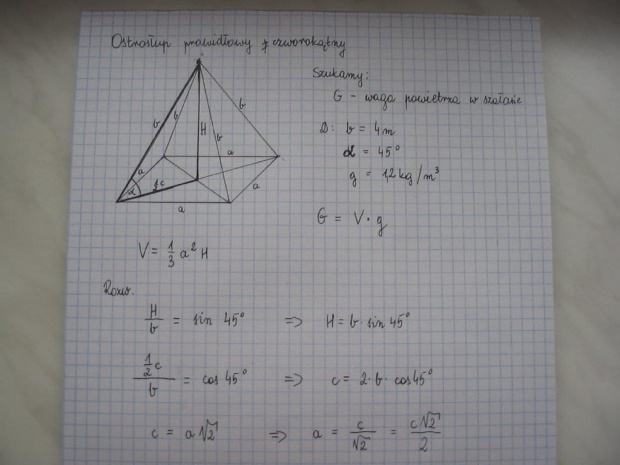 Ostrosłup prawidłowy czworokątny
Szukamy:
G - waga powietrza w szałasie
D: b = 4m
α = 45°
g = 12 kg/m³
G = V · g
b
b
b
b
H
a
a
a
a
α
½c
V = 1/3 a² H
Rozw.
H/b = sin 45° => H = b · sin 45°
½c/b = cos 45° => c = 2 · b · cos 45°
c = a√2 => a = c/√2 = c√2/2